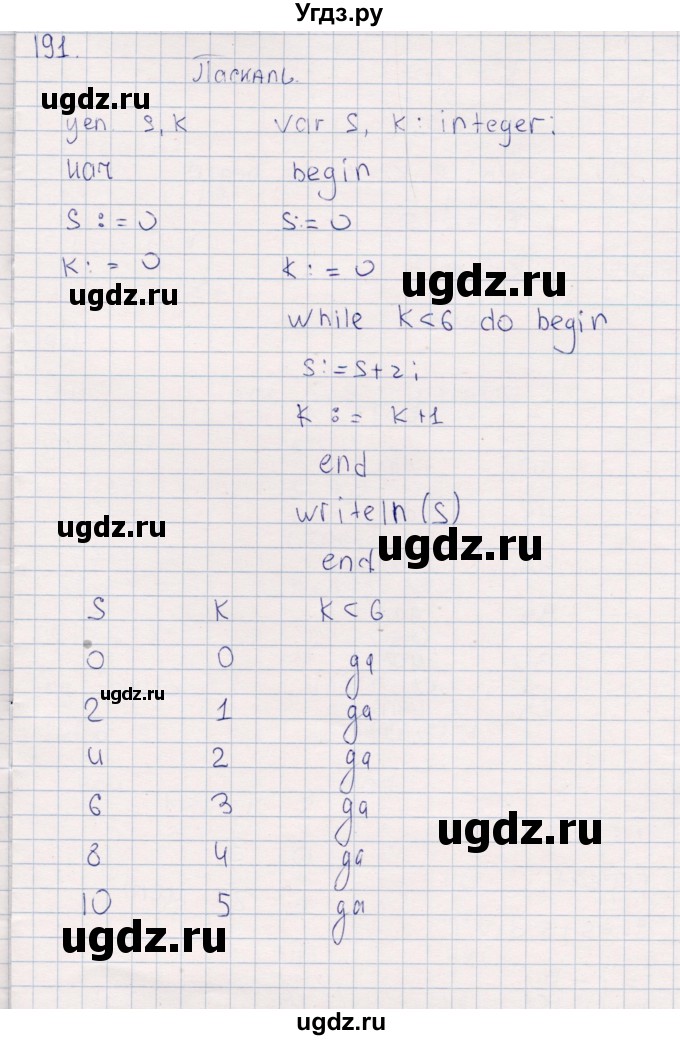 Угдз.ру
191.
Паскаль.
ugdz.ru
цел s, k var s, k : integer;
нач begin
S := 0 S:= 0
K := 0 K := 0
ugdz.ru ugdz.ru
while K<6 do begin
S:=S+2;
K := K+1
end
writeln (S)
ugdz.ru ugdz.ru
end
S K K<6
0 0 да
ugdz.ru
2 1 да
4 2 да
6 3 да
ugdz.ru
8 4 да
10 5 да
ugdz.ru
ugdz.ru